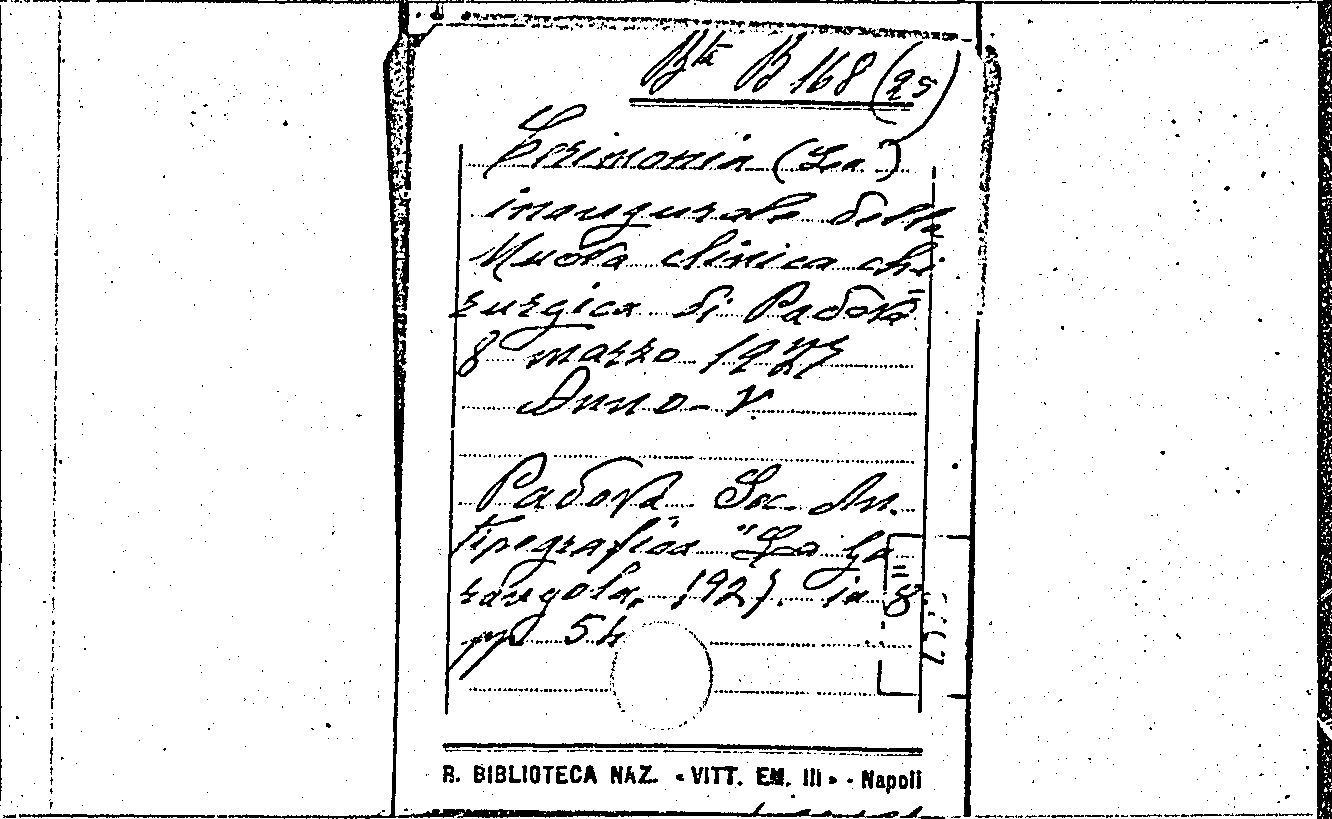 Bta B 168 (25)
Cerimonia (La)
inaugurale della
Nuova clinica chi
rurgica di Padova
8 marzo 1927
Anno - V.
Padova Soc. An.
tipografica "La Ga
rangola, 1927. in 8
pp 54
R. BIBLIOTECA NAZ. «VITT. EM. III» - Napoli